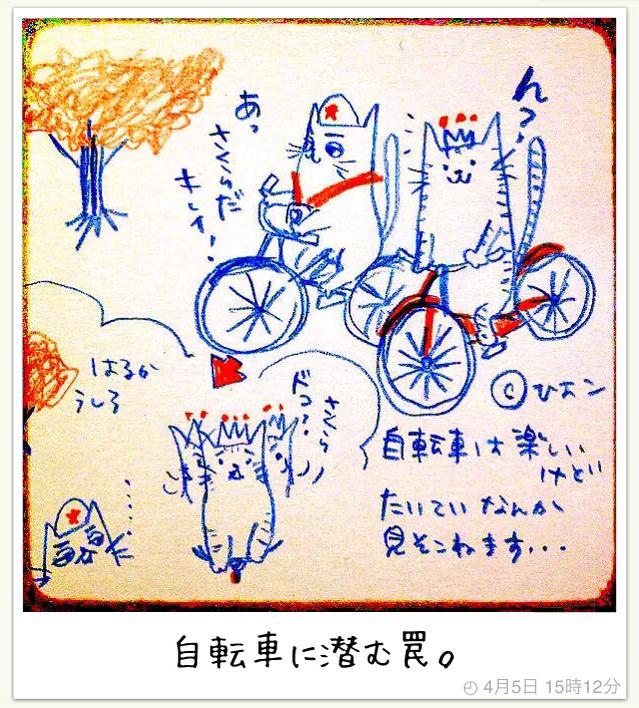 んっ！
あっ
さくらだ
キレイ！
はるか
うしろ
さくら
ドコ？
©ひよこン
自転車は楽しい
けど
たいていなんか
見そこねます・・・
自転車に潜む罠。
4月5日 15時12分